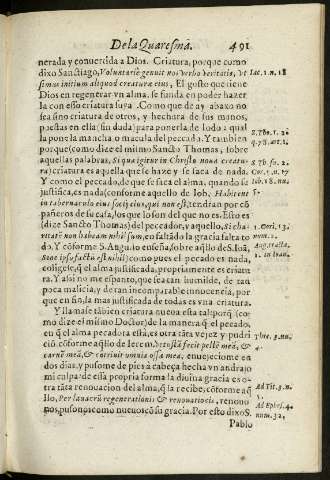 De la Quaresma. 491
nerada y conuertida a Dios. Criatura, porque como
dixo Sanctiago, Voluntariè genuit nos verbo veritatis, vt Iac. 1. n. 18
simus initium aliquod creaturæ eius, El gosto que tiene
Dios en regenerar vn alma, se funda en poder hazer
la con esso criatura suya. Como que de ay abaxo no
sea sino criatura de otros, y hechura de sus manos,
puestas en ella (sin duda) para ponerla de lodo: a qual
la pone la mancha o macula del peccado. Y tambien
porque (como dize el mismo Sancto Thomas, sobre
aquellas palabras, Si qua igitur in Christo noua creatu-
ra) criatura es aquella que se haze y se saca de nada.
Y como el peccado, de que se saca el alma, quando se
justifica, es nada (conforme aquello de Iob, Habitent
in tabernaculo eius socij eius, qui non est, tendran por cõ
pañeros de su casa, los que lo son del que no es. Esto es
(dize Sancto Thomas) del peccador, y aquello, Si cha-
ritatẽ non habeam nihil sum, en faltãdo la gracia falta to
do. Y cõforme S. Augu. lo enseña, sobre aq̃llo de S. Iuã,
como pues el pecado es nada,
coligese, q̃ el alma justificada, propriamente es criatu
ra. Y assi no me espanto, que sea tan humilde, de tan
poca malicia, y de tan incomparable innocencia, por
que en fin, la mas justificada de todas es vna criatura.
Y llamase tãbien criatura nueua esta tal, porq̃ (co-
mo dize el mismo Doctor) de la manera q̃ el pecado,
en q̃ el alma pecadora està, es otra tãta vejez y pudri
ciõ, cõforme aq̃llo de Ierem. Vetustã fecit pellẽ meã, &
carnẽ meã, & contriuit omnia ossa mea, enuejeciome en
dos dias, y pusome de pies a cabeça hecha vn andrajo
mi culpa: de essa propria forma la diuina gracia es o-
tra tãta renouacion del alma, q̃ la recibe, cõforme aq̃
llo, Per lauacrũ regenerationis & renouationis, renouo
nos, pusonos como nueuos cõ su gracia. Por esto dixo S.
Pablo
S. Tho. 1. 2.
S. Th. 
Cor. 5. n. 17
Iob. 18. nu.
1. Cor. 13.
num. 2.
Aug. 
in Ioan.
Thre. 3. nu.
4.
Ad Tit. 3. n.
5.
Ad Ephes. 4.